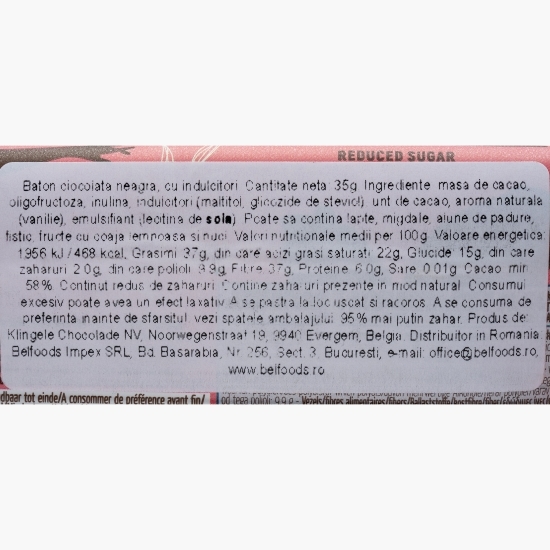 REDUCED SUGAR
Baton ciocolata neagra, cu indulcitori. Cantitate neta: 35g. Ingrediente: masa de cacao,
oligofructoza, inulina, indulcitori (maltitol, glicozide de steviol), unt de cacao, aroma naturala
(vanilie), emulsifiant (lecitina de soia). Poate sa contina lapte, migdale, alune de padure,
fistic, fructe cu coaja lemnoasa si nuci. Valori nutritionale medii per 100g: Valoare energetica:
1956 kJ / 468 kcal, Grasimi: 37g, din care acizi grasi saturati: 22g, Glucide: 15g, din care
zaharuri: 2.0g, din care polioli: 9.9g, Fibre: 37g, Proteine: 6.0g, Sare: 0.01g. Cacao: min.
58%. Continut redus de zaharuri. Contine zaharuri prezente in mod natural. Consumul
excesiv poate avea un efect laxativ. A se pastra la loc uscat si racoros. A se consuma de
preferinta inainte de sfarsitul: vezi spatele ambalajului. 95% mai putin zahar. Produs de:
Klingele Chocolade NV, Noorwegenstraat 19, 9940 Evergem, Belgia. Distribuitor in Romania:
Belfoods Impex SRL, Bd. Basarabia, Nr. 256, Sect. 3, Bucuresti, e-mail: office@belfoods.ro,
www.belfoods.ro
dbaar tot einde/A consommer de préférence avant fin/
Vezels/fibres alimentaires/fibers/Ballaststoffe/